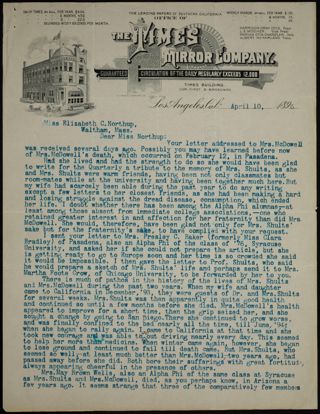 THE LEADING PAPERS OF SOUTHERN CALIFORNIA
OFFICE OF
THE TIMES
MIRROR COMPANY,
GUARANTEED CIRCULATION OF THE DAILY REGULARLY EXCEEDS 12,000
TIMES BUILDING,
Los Angeles, Cal. April 10, 189
Miss Elizabeth C. Northup,
Waltham, Mass.
Dear Miss Northup:
Your letter addressed to Mrs. McDowell
was received several days ago. Possibly you may have learned before now
of Mrs. McDowell's death, which occurred on February 12, in Pasadena.
Had she lived and had the strength to do so she would have been glad
to write for the Quarterly a tribute to the memory of Mrs. Shults, as she
and Mrs. Shults were warm friends, having been not only classmates but
room-mates while at the university, and having been together much here. But
my wife had scarcely been able during the past year to do any writing
except a few letters to her closest friends, as she had been making a hard
and losing struggle against the dread disease, consumption, which ended
her life. I doubt whether there has been among the Alpha Phi alumnae--at
least among those absent from immediate college associations--one who
retained greater interest in and affection for her fraternity than did Mrs.
McDowell. She would, therefore, have been glad not only for Mrs. Shults'
sake but for the fraternity's sake, to have complied with your request.
I sent your letter to Mrs. Frank Smalley (formerly Miss Clara
Bradley) of Pasadena, also an Alpha Phi of the class of '76, Syracuse
University, and asked her if she could not prepare the article, but she
is getting ready to go to Europe soon and her time is so crowded she said
it would be impossible. I then gave the letter to Prof. Shults, who said
he would prepare a sketch of Mrs. Shults' life and perhaps send it to Mrs.
Martha Foote Crow, of Chicago University, to be forwarded by her to you.
There is much of pathos in the history of the lives of Mrs. Shults
and Mrs. McDowell during the past two years. When my wife and daughter
came to California in December, '91, they were guests of Dr. and Mrs. Shults
for several weeks. Mrs. Shults was then apparently in quite good health
and continued so until a few months before she died. Mrs. McDowell's health
appeared to improve for a short time, then the grip seized her, and she
sought a change by going to San Diego. There she continued to grow worse,
and was finally confined to the bed nearly all the time, till June, '94;
when she began to rally again. I came to California at that time and she
took new courage and was able to be out driving nearly every day. This seemed
to help her more than medicines. When winter came again, however, she began
to lose ground and continued to fail till death came. But Mrs. Shults, who
seemed so well--at least much better than Mrs. McDowell--two years ago, had
passed away before she did. Both bore their sufferings with great fortitude,
always appearing cheerful in the presence of others.
Mrs. May Brown Wells, also an Alpha Phi of the same class at Syracuse
as Mrs. Shults and Mrs. McDowell, died, as you perhaps know, in Arizona a
few years ago. It seems strange that three of the comparatively few members